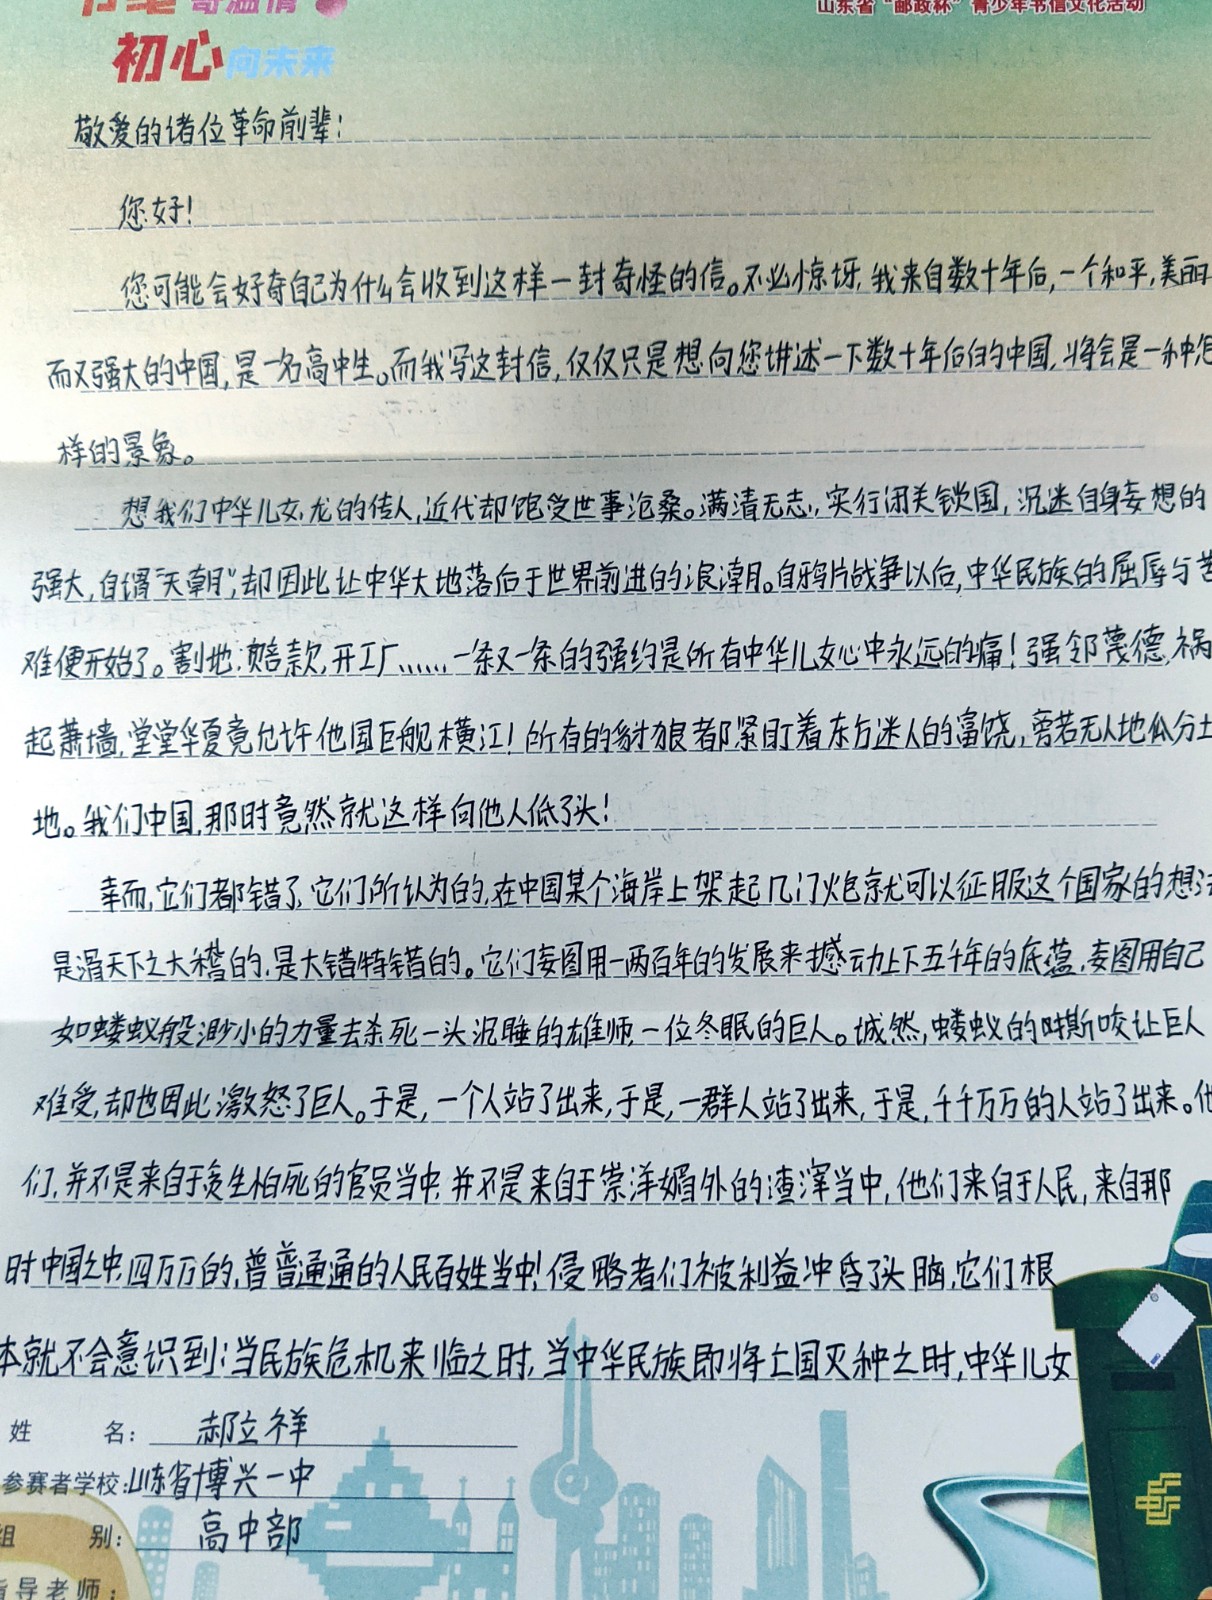 书笔寄温情
山东省“邮政杯”青少年书信文化活动
初心向未来
敬爱的诸位革命前辈：
您好！
您可能会好奇自己为什么会收到这样一封奇怪的信。不必惊讶，我来自数十年后，一个和平，美丽
而又强大的中国，是一名高中生。而我写这封信，仅仅只是想向您讲述一下数十年后的中国，将会是一种怎
样的景象。
想我们中华儿女，龙的传人，近代却饱受世事沧桑。满清无志，实行闭关锁国，沉迷自身妄想的
强大，自谓“天朝”，却因此让中华大地落后于世界前进的浪潮。自鸦片战争以后，中华民族的屈辱与苦
难便开始了。割地，赔款，开工厂……一条又一条的强约是所有中华儿女心中永远的痛！强邻蔑德，祸
起萧墙，堂堂华夏竟允许他国巨舰横江！所有的豺狼都紧盯着东方迷人的富饶，旁若无人地瓜分土
地。我们中国，那时竟然就这样向他人低了头！
幸而，它们都错了，它们所认为的，在中国某个海岸上架起几门炮就可以征服这个国家的想法
是滑天下之大稽的，是大错特错的。它们妄图用一两百年的发展来撼动上下五千年的底蕴，妄图用自己
如蝼蚁般渺小的力量去杀死一头沉睡的雄师，一位冬眠的巨人。诚然，蝼蚁的嘶咬让巨人
难受，却也因此激怒了巨人。于是，一个人站了出来，于是，一群人站了出来，于是，千千万万的人站了出来。他
们，并不是来自于贪生怕死的官员当中，并不是来自于崇洋媚外的渣滓当中，他们来自于人民，来自那
时中国之中，四万万的，普普通通的人民百姓当中！侵略者们被利益冲昏了头脑，它们根
本就不会意识到：当民族危机来临之时，当中华民族即将亡国灭种之时，中华儿女
姓 名：郝立祥
参赛者学校：山东省博兴一中
组 别：高中部
指导老师：